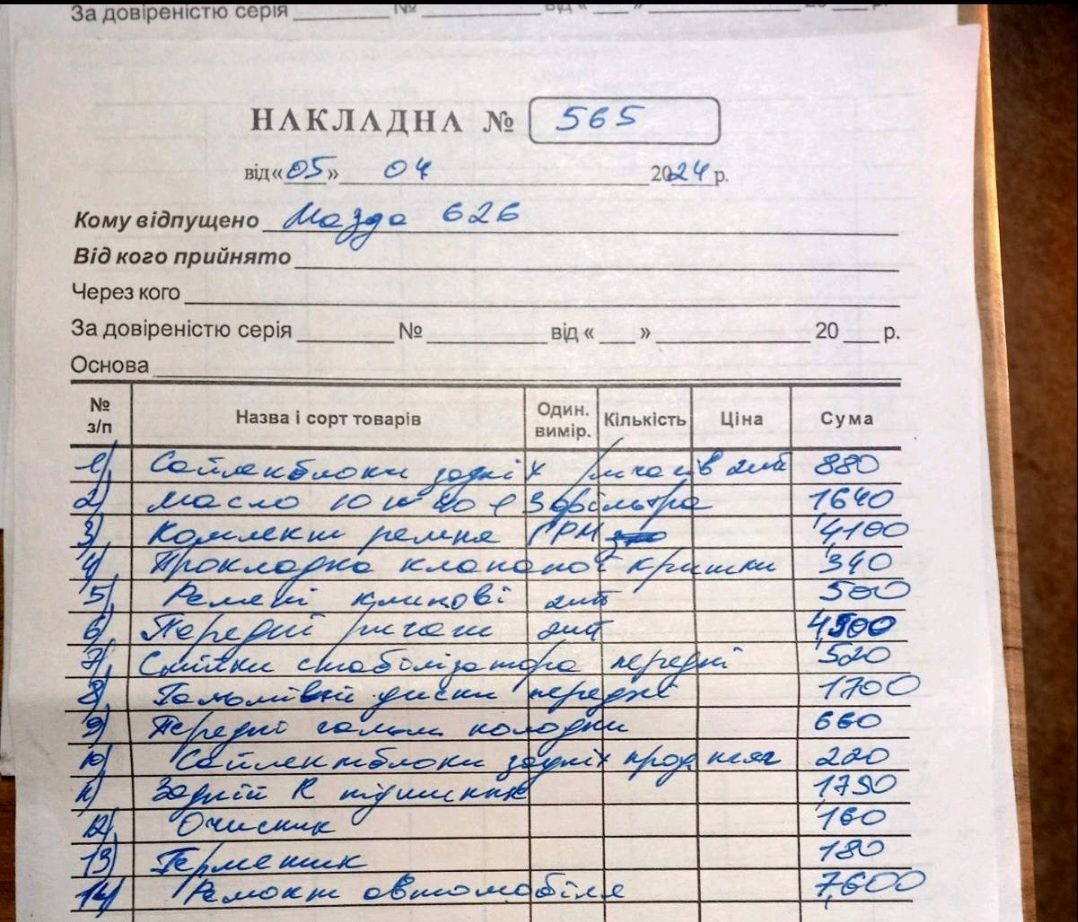 За довіреністю серія № від « » 20 р.
НАКЛАДНА № 565
від «05» 04 2024 р.
Кому відпущено Мазда 626
Від кого прийнято
Через кого
За довіреністю серія № від « » 20 р.
Основа
№ з/п Назва і сорт товарів Один. вимір. Кількість Ціна Сума
1) Сайленблоки задніх ричагів 2шт 880
2) Масло 10 w 40 є 3 фільтра 1640
3) Комплект ремня ГРМ 4100
4) Прокладка клапаної кришки 340
5) Ремені клинові 2шт 500
6) Передні ричаги 2шт
7) Стійки стабілізатора передні 520
8) Гальмівні диски передні 1700
9) Передні гальм колодки 660
10) Сайлентблоки задніх прод тяг 220
11) Задній R підшипник 1790
12) Очисник 160
13) Герметик 180
14) Ремонт автомобіля 7,600